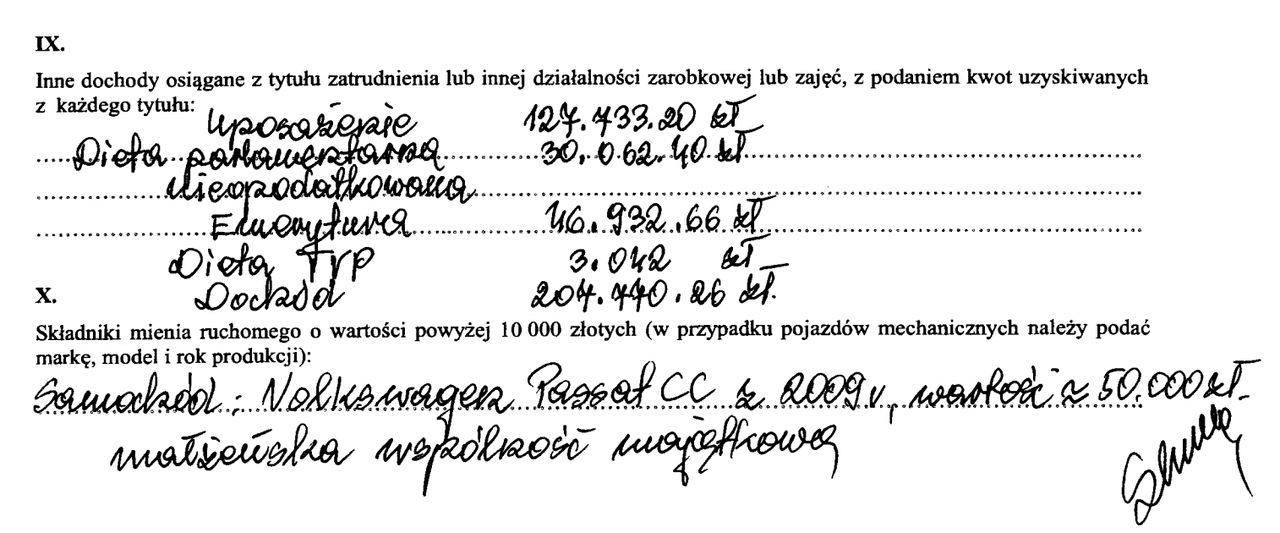 IX.
Inne dochody osiągane z tytułu zatrudnienia lub innej działalności zarobkowej lub zajęć, z podaniem kwot uzyskiwanych
z każdego tytułu:
Uposażenie 127.733.20 zł
Dieta parlamentarna 30.062.40 zł
nieopodatkowana
Emerytura 46.932.66 zł
Dieta TVP 3.042 zł
X. Dochód 207.770.26 zł.
Składniki mienia ruchomego o wartości powyżej 10 000 złotych (w przypadku pojazdów mechanicznych należy podać
markę, model i rok produkcji):
Samochód: Volkswagen Passat CC z 2009 r, wartość ≈ 50.000 zł.
małżeńska wspólność majątkowa